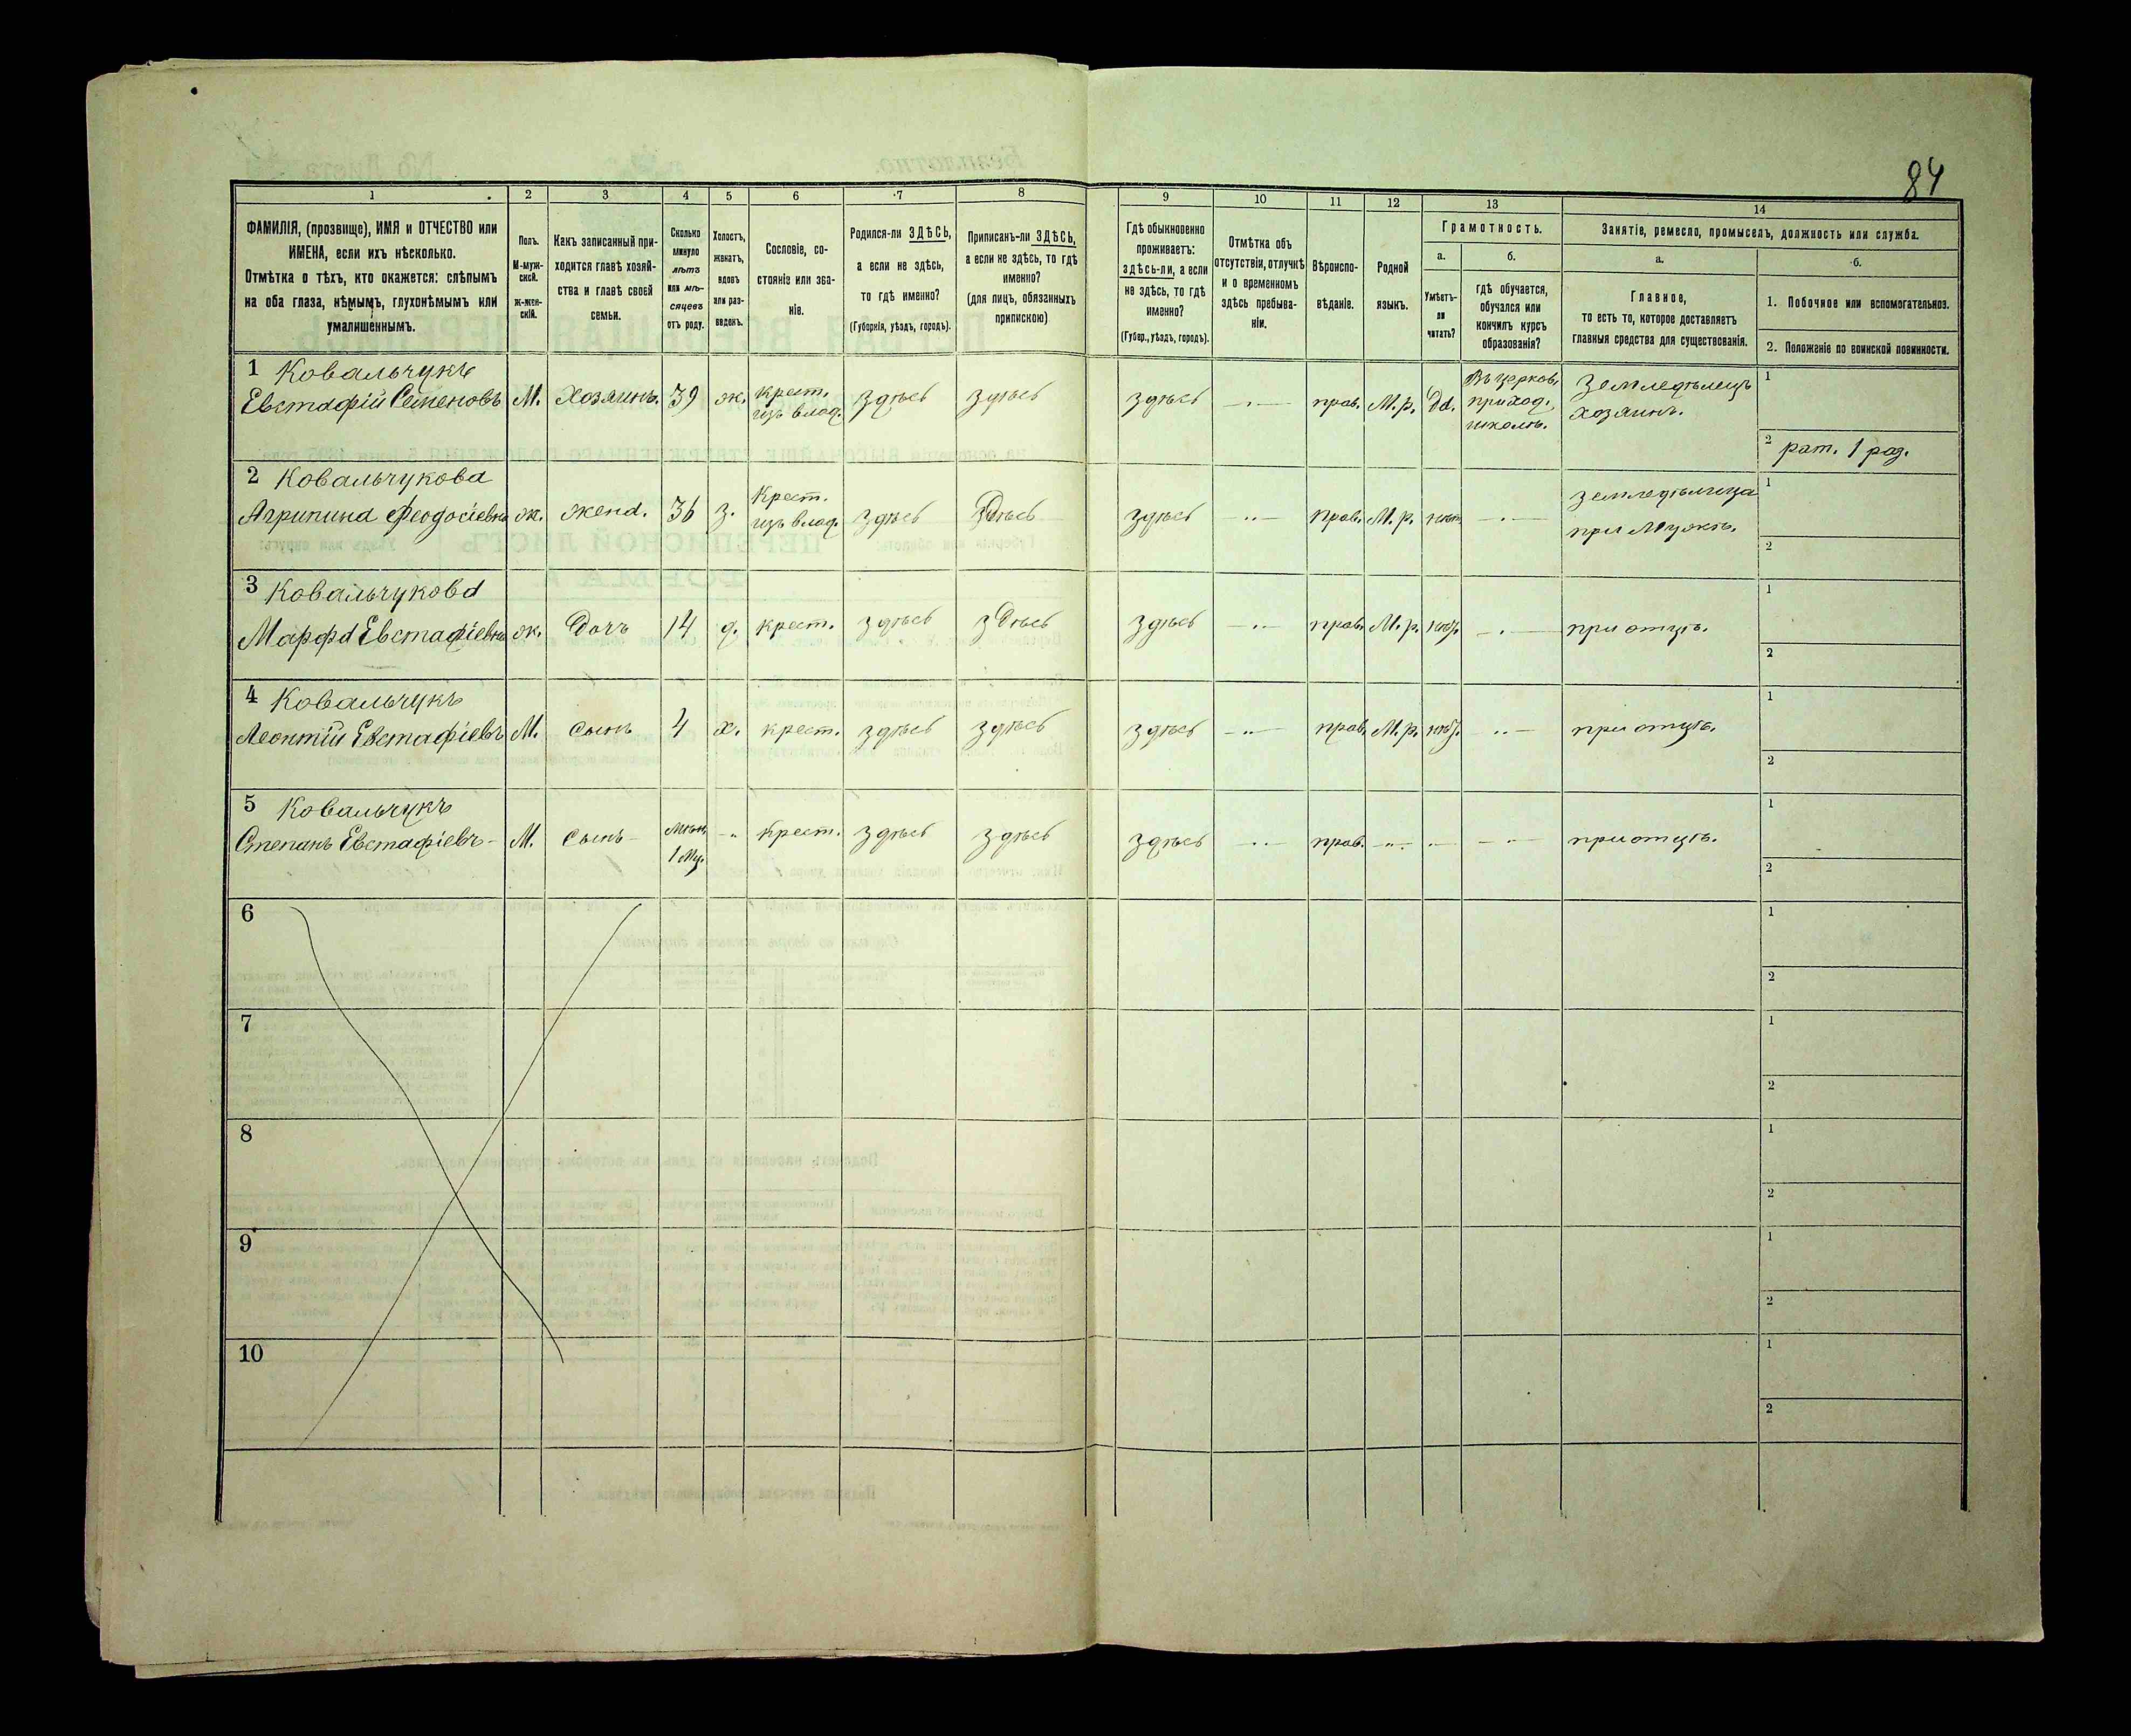 84
1
2
3
4
5
6
7
8
9
10
11
12
13
14
ФАМИЛІЯ, (прозвище), ИМЯ и ОТЧЕСТВО или
ИМЕНА, если ихъ нѣсколько.
Отмѣтка о тѣхъ, кто окажется: слѣпымъ
на оба глаза, нѣмымъ, глухонѣмымъ или
умалишеннымъ.
Полъ.
М-муж-
ской.
ж-жен-
скій.
Какъ записанный при-
ходится главѣ хозяй-
ства и главѣ своей
семьи.
Сколько
минуло
лѣтъ
или мѣ-
сяцевъ
отъ роду.
Холостъ,
женатъ,
вдовъ
или раз-
веденъ.
Сословіе, со-
стояніе или зва-
ніе.
Родился-ли ЗДѢСЬ,
а если не здѣсь,
то гдѣ именно?
(Губернія, уѣздъ, городъ).
Приписанъ-ли ЗДѢСЬ,
а если не здѣсь, то гдѣ
именно?
(для лицъ, обязанныхъ
припискою)
Гдѣ обыкновенно
проживаетъ:
здѣсь-ли, а если
не здѣсь, то гдѣ
именно?
(Губер., уѣздъ, городъ).
Отмѣтка объ
отсутствіи, отлучкѣ
и о временномъ
здѣсь пребыва-
ніи.
Вѣроиспо-
вѣданіе.
Родной
языкъ.
Грамотность.
а.
б.
Умѣетъ-
ли
читать?
гдѣ обучается,
обучался или
кончилъ курсъ
образованія?
Занятіе, ремесло, промыселъ, должность или служба.
а.
б.
Главное,
то есть то, которое доставляетъ
главныя средства для существованія.
1. Побочное или вспомогательное.
2. Положеніе по воинской повинности.
1 Ковальчукъ
Евстафій Семеновъ М. Хозяинъ. 39 ж. крест. изъ влад. здѣсь здѣсь здѣсь прав. М.р. Да. Въ церков. приход. школѣ. Земледѣлецъ хозяинъ.
1
2 рат. 1 раз.
2 Ковальчукова
Агрипина Феодосіевна ж. жена. 36 з. Крест. изъ влад. здѣсь здѣсь здѣсь прав. М.р. нѣт земледѣлица при мужѣ.
1
2
3 Ковальчукова
Марфа Евстафіевна ж. Дочь 14 д. крест. здѣсь здѣсь здѣсь прав. М.р. нѣт. при отцѣ.
1
2
4 Ковальчукъ
Леонтій Евстафіевъ М. сынъ 4 х. крест. здѣсь здѣсь здѣсь прав. М.р. нѣт. при отцѣ.
1
2
5 Ковальчукъ
Степанъ Евстафіевъ М. сынъ крест. здѣсь здѣсь здѣсь прав. при отцѣ.
1
2
6
1
2
7
1
2
8
1
2
9
1
2
10
1
2